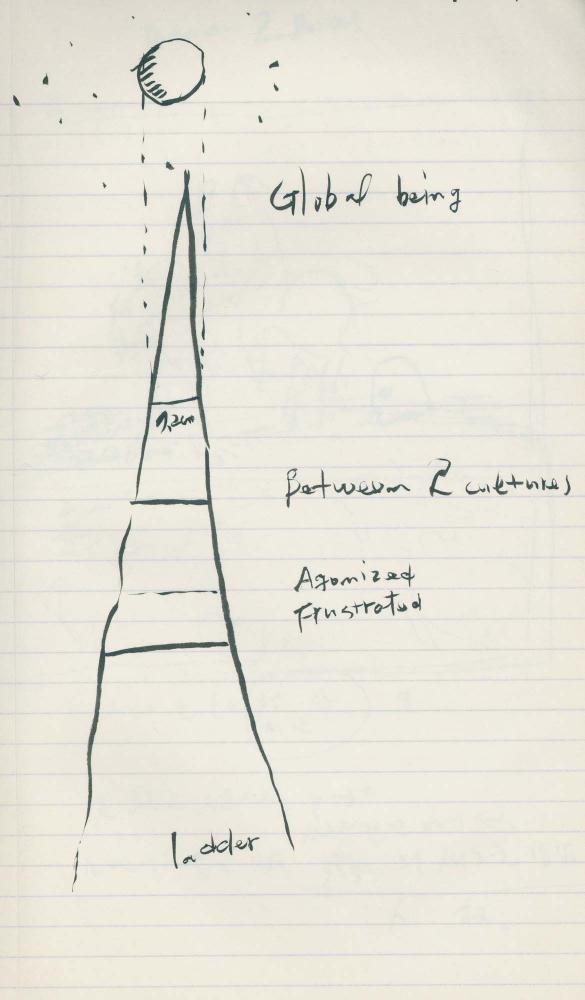 Global being
Between 2 cultures
Agonized
Frustrated
ladder